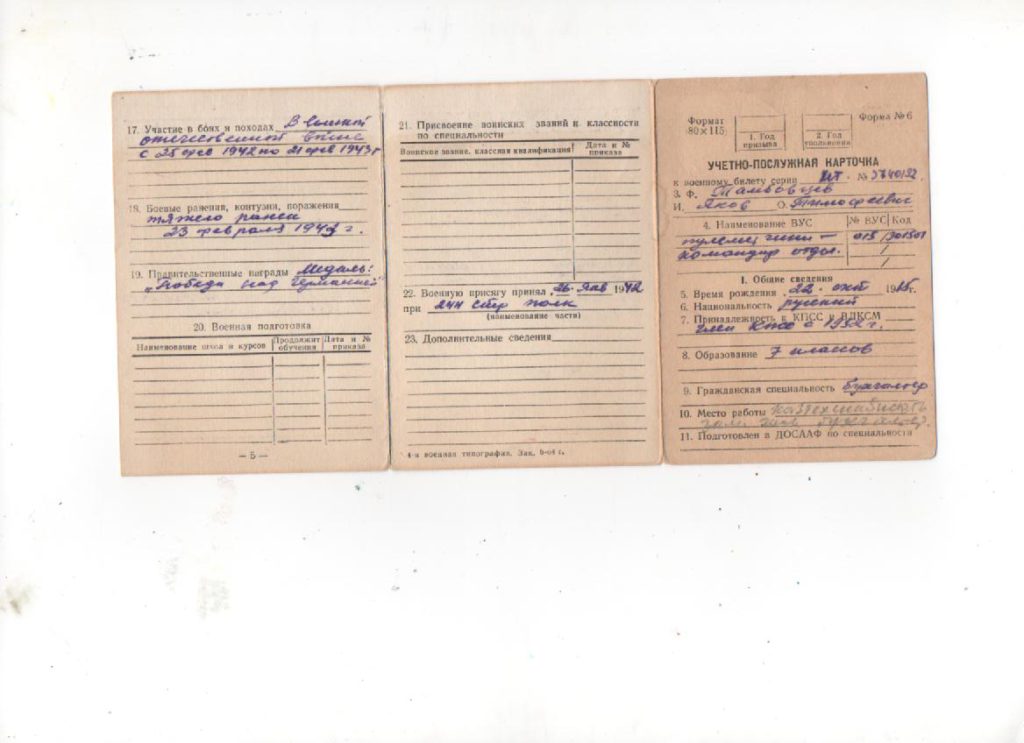 17. Участие в боях и походах В великой
отечественной войне
с 25 фев 1942 по 21 фев 1943 г
18. Боевые ранения, контузии, поражения
тяжело ранен
23 февраля 1943 г.
19. Правительственные награды Медаль:
„Победа над Германией"
20. Военная подготовка
Наименование сбора и курсов
Продолжит обучения
Дата и № приказа
— 5 —
21. Присвоение воинских званий и классности
по специальности
Воинское звание, классная квалификация
Дата и №
приказа
22. Военную присягу принял 26 янв 1942
при 244 стр полк
(наименование части)
23. Дополнительные сведения
4-я военная типография. Зак.
Формат
80×115
1. Год
призыва
2. Год
увольнения
Форма № 6
УЧЕТНО-ПОСЛУЖНАЯ КАРТОЧКА
к военному билету серии № 3740192
3. Ф. Тамбовцев
И. Яков О. Тимофеевич
4. Наименование ВУС
№ ВУС
Код
командир отдел.
I. Общие сведения
5. Время рождения 22 окт г.
6. Национальность русский
7. Принадлежность к КПСС и ВЛКСМ
член КПСС с 1952 г.
8. Образование 7 классов
9. Гражданская специальность бухгалтер
10. Место работы
зам. глав бухгалтер.
11. Подготовлен в ДОСААФ по специальности